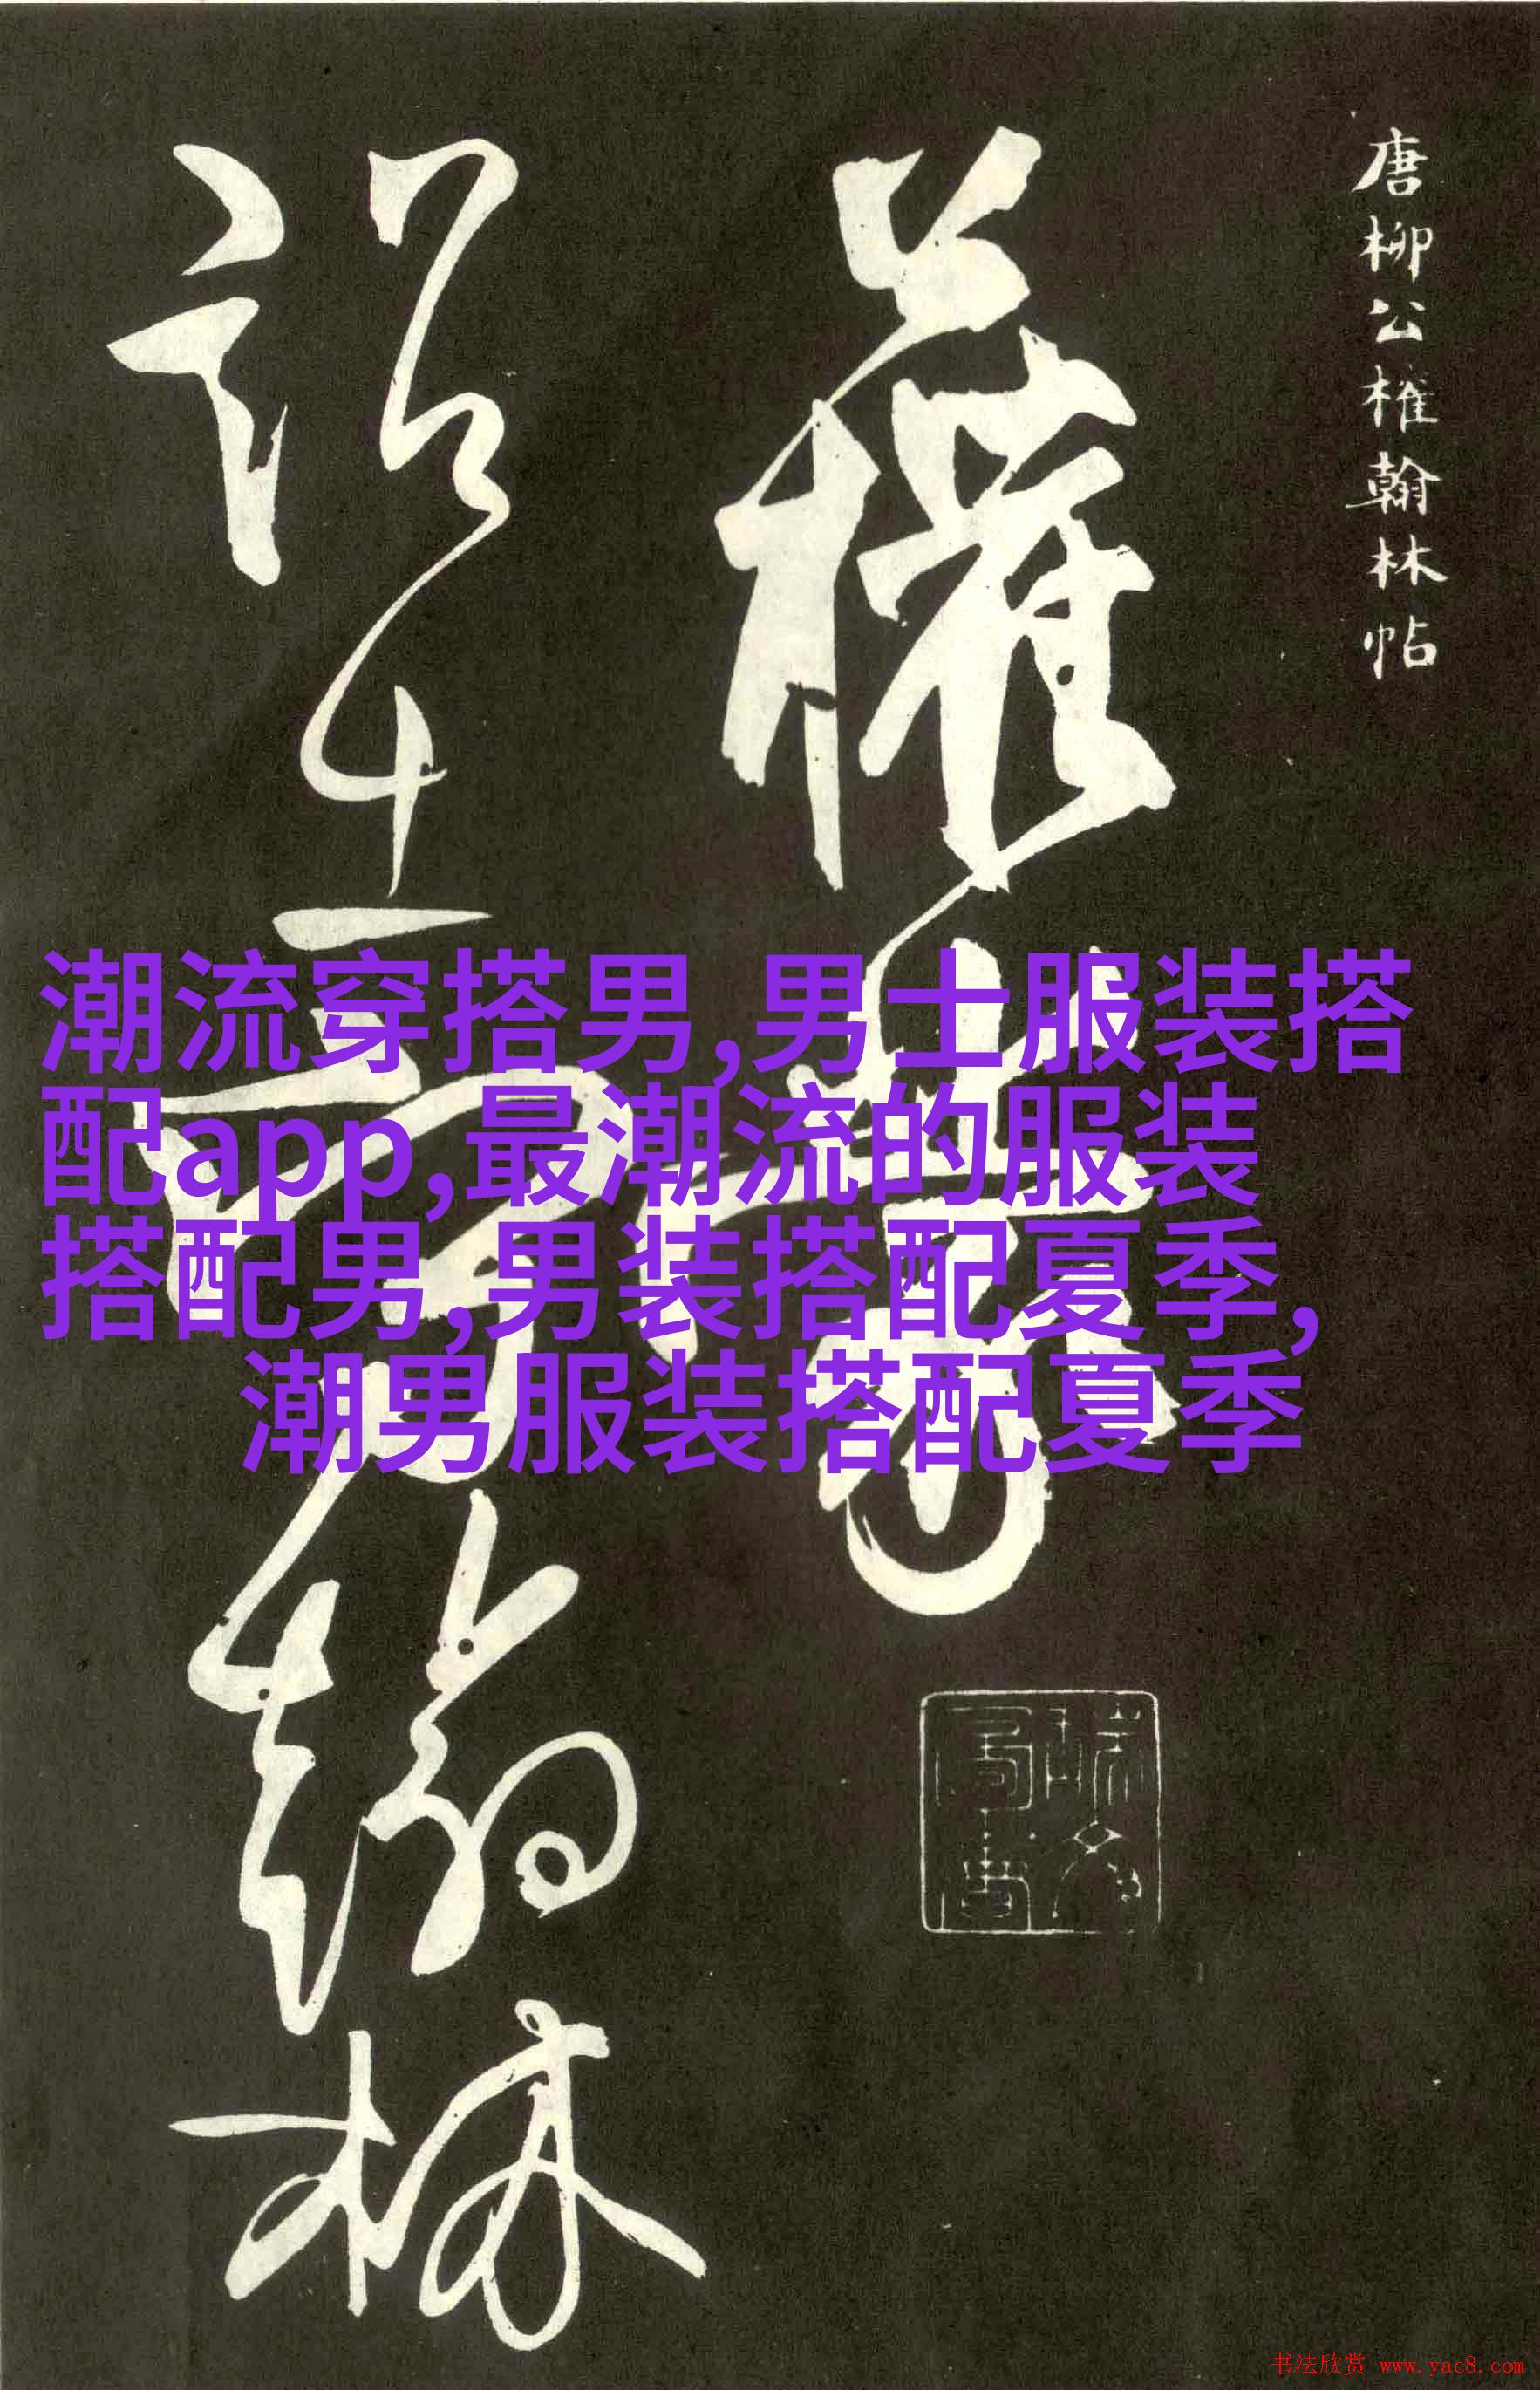 唐柳公權翰林帖
公權蒙
詔出守翰林
潮流穿搭男,男士服装搭
配app,最潮流的服装
搭配男,男装搭配夏季,
潮男服装搭配夏季
书法欣赏 www.yac8.com